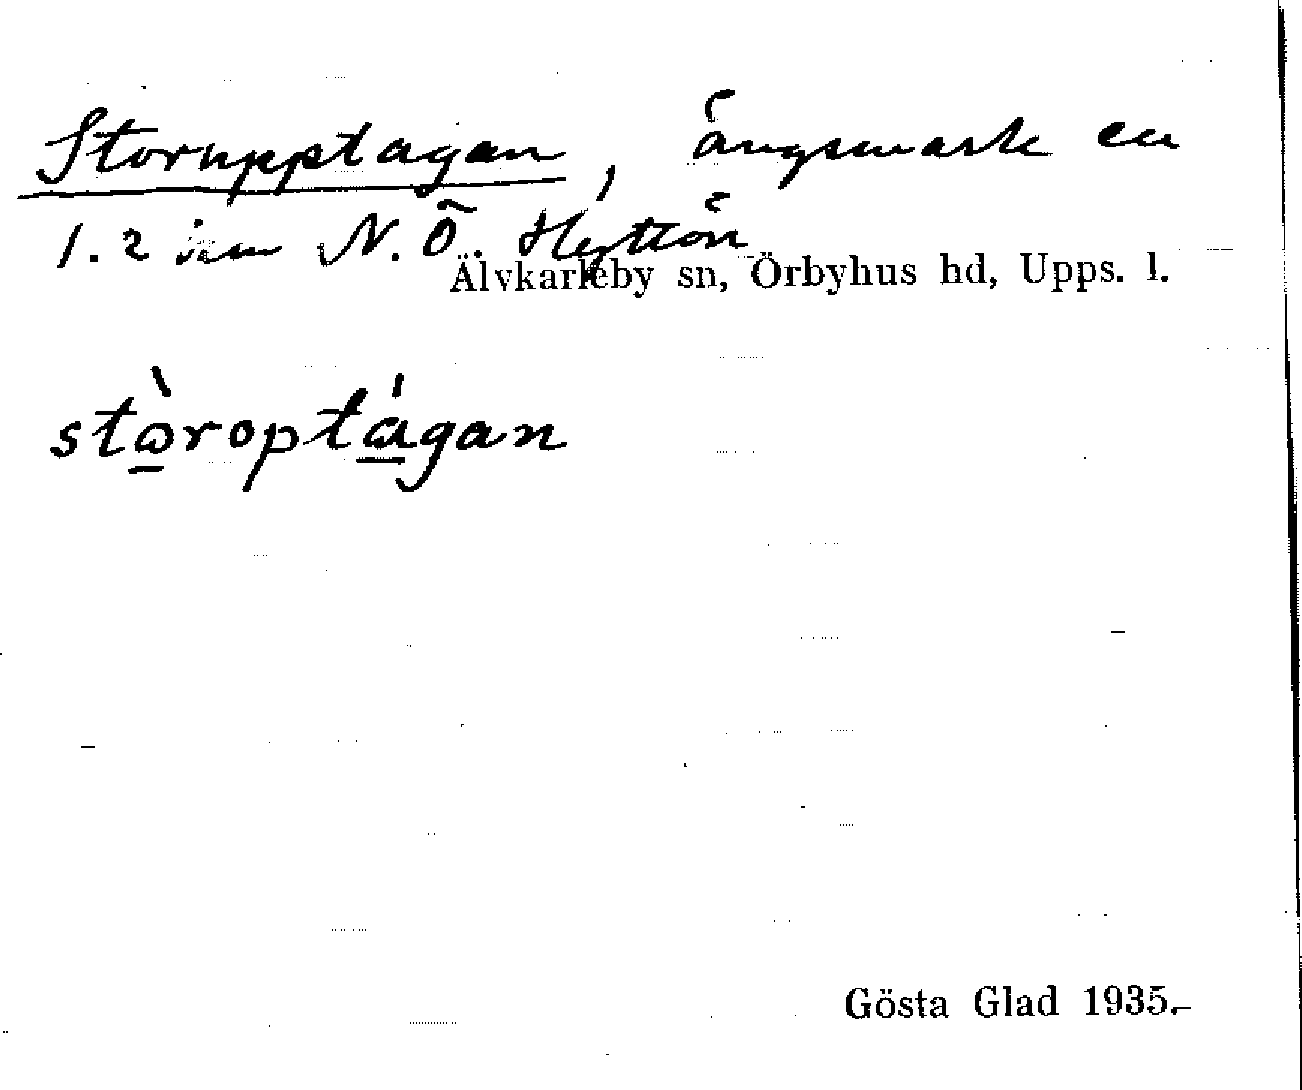 Storupptagan, ängsmark ca
1.2 km N.Ö. Hyttön
Älvkarleby sn, Örbyhus hd, Upps. l.
stòroptágan
Gösta Glad 1935.